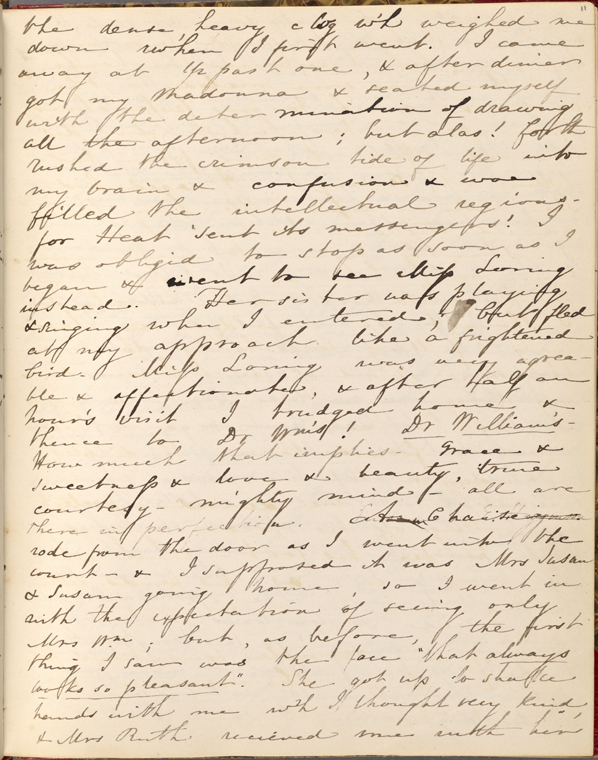 11
the dense, heavy clog wh weighed me
down when I first went. I came
away at 1/2 past one, & after dinner
got my Madonna & seated myself
with the determination of drawing
all the afternoon; but alas! forth
rushed the crimson tide of life into
my brain & confusion & woe
filled the intellectual regions-
for Heat sent its messengers! I
was obligid to stop as soon as I
began & went to see Miss Loring
instead. Her sister was playing
& singing when I entered, but fled
at my approach like a frightened
bird. Miss Loring was very agrea-
ble & affectionate, & after half an
hour's visit I trudged home &
thence to Dr Wm's! Dr William's-
How much that implies- Grace &
sweetness & love & beauty, true
courtesy- mighty mind- all are
there in perfection. A Chaise
rode from the door as I went into the
court- & I supposed it was Mrs Susan
& Susan going home, so I went in
with the expectation of seeing only
Mrs Wm; but, as before, the first
thing I saw was the face "that always
looks so pleasant". She got up to shake
hands with me wh I thought very kind,
& Mrs Ruth recieved me with her